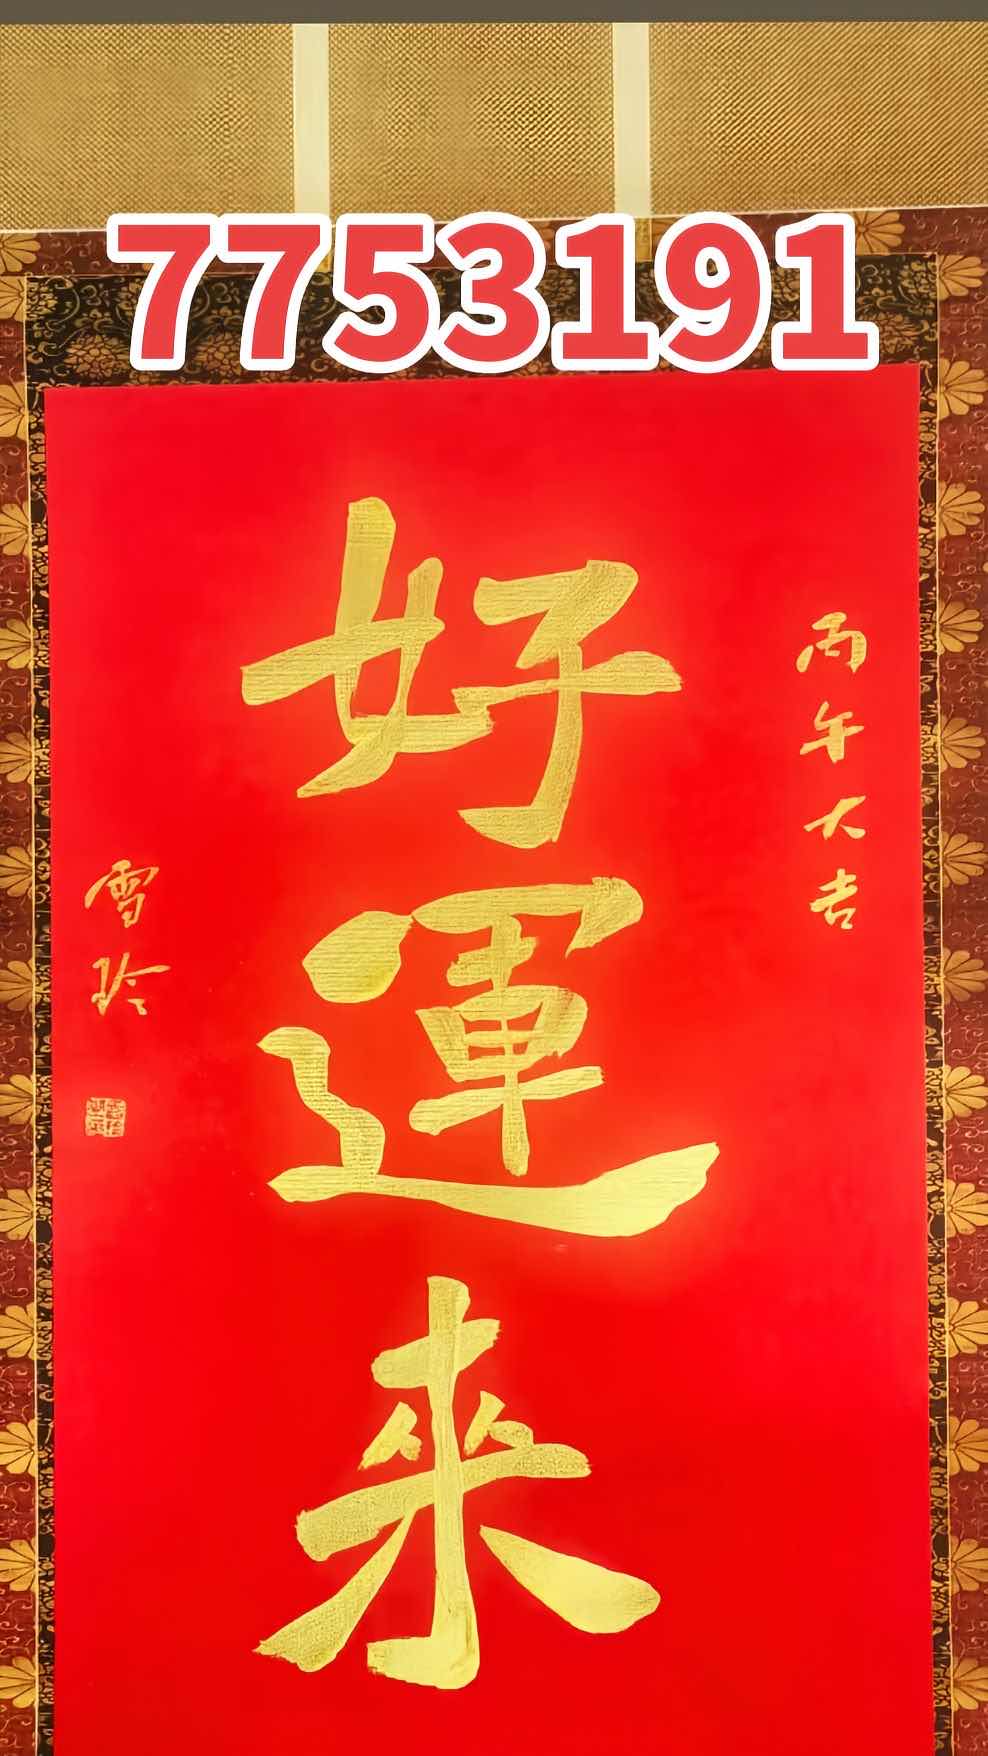 7753191
丙午大吉
好運來
雪玲